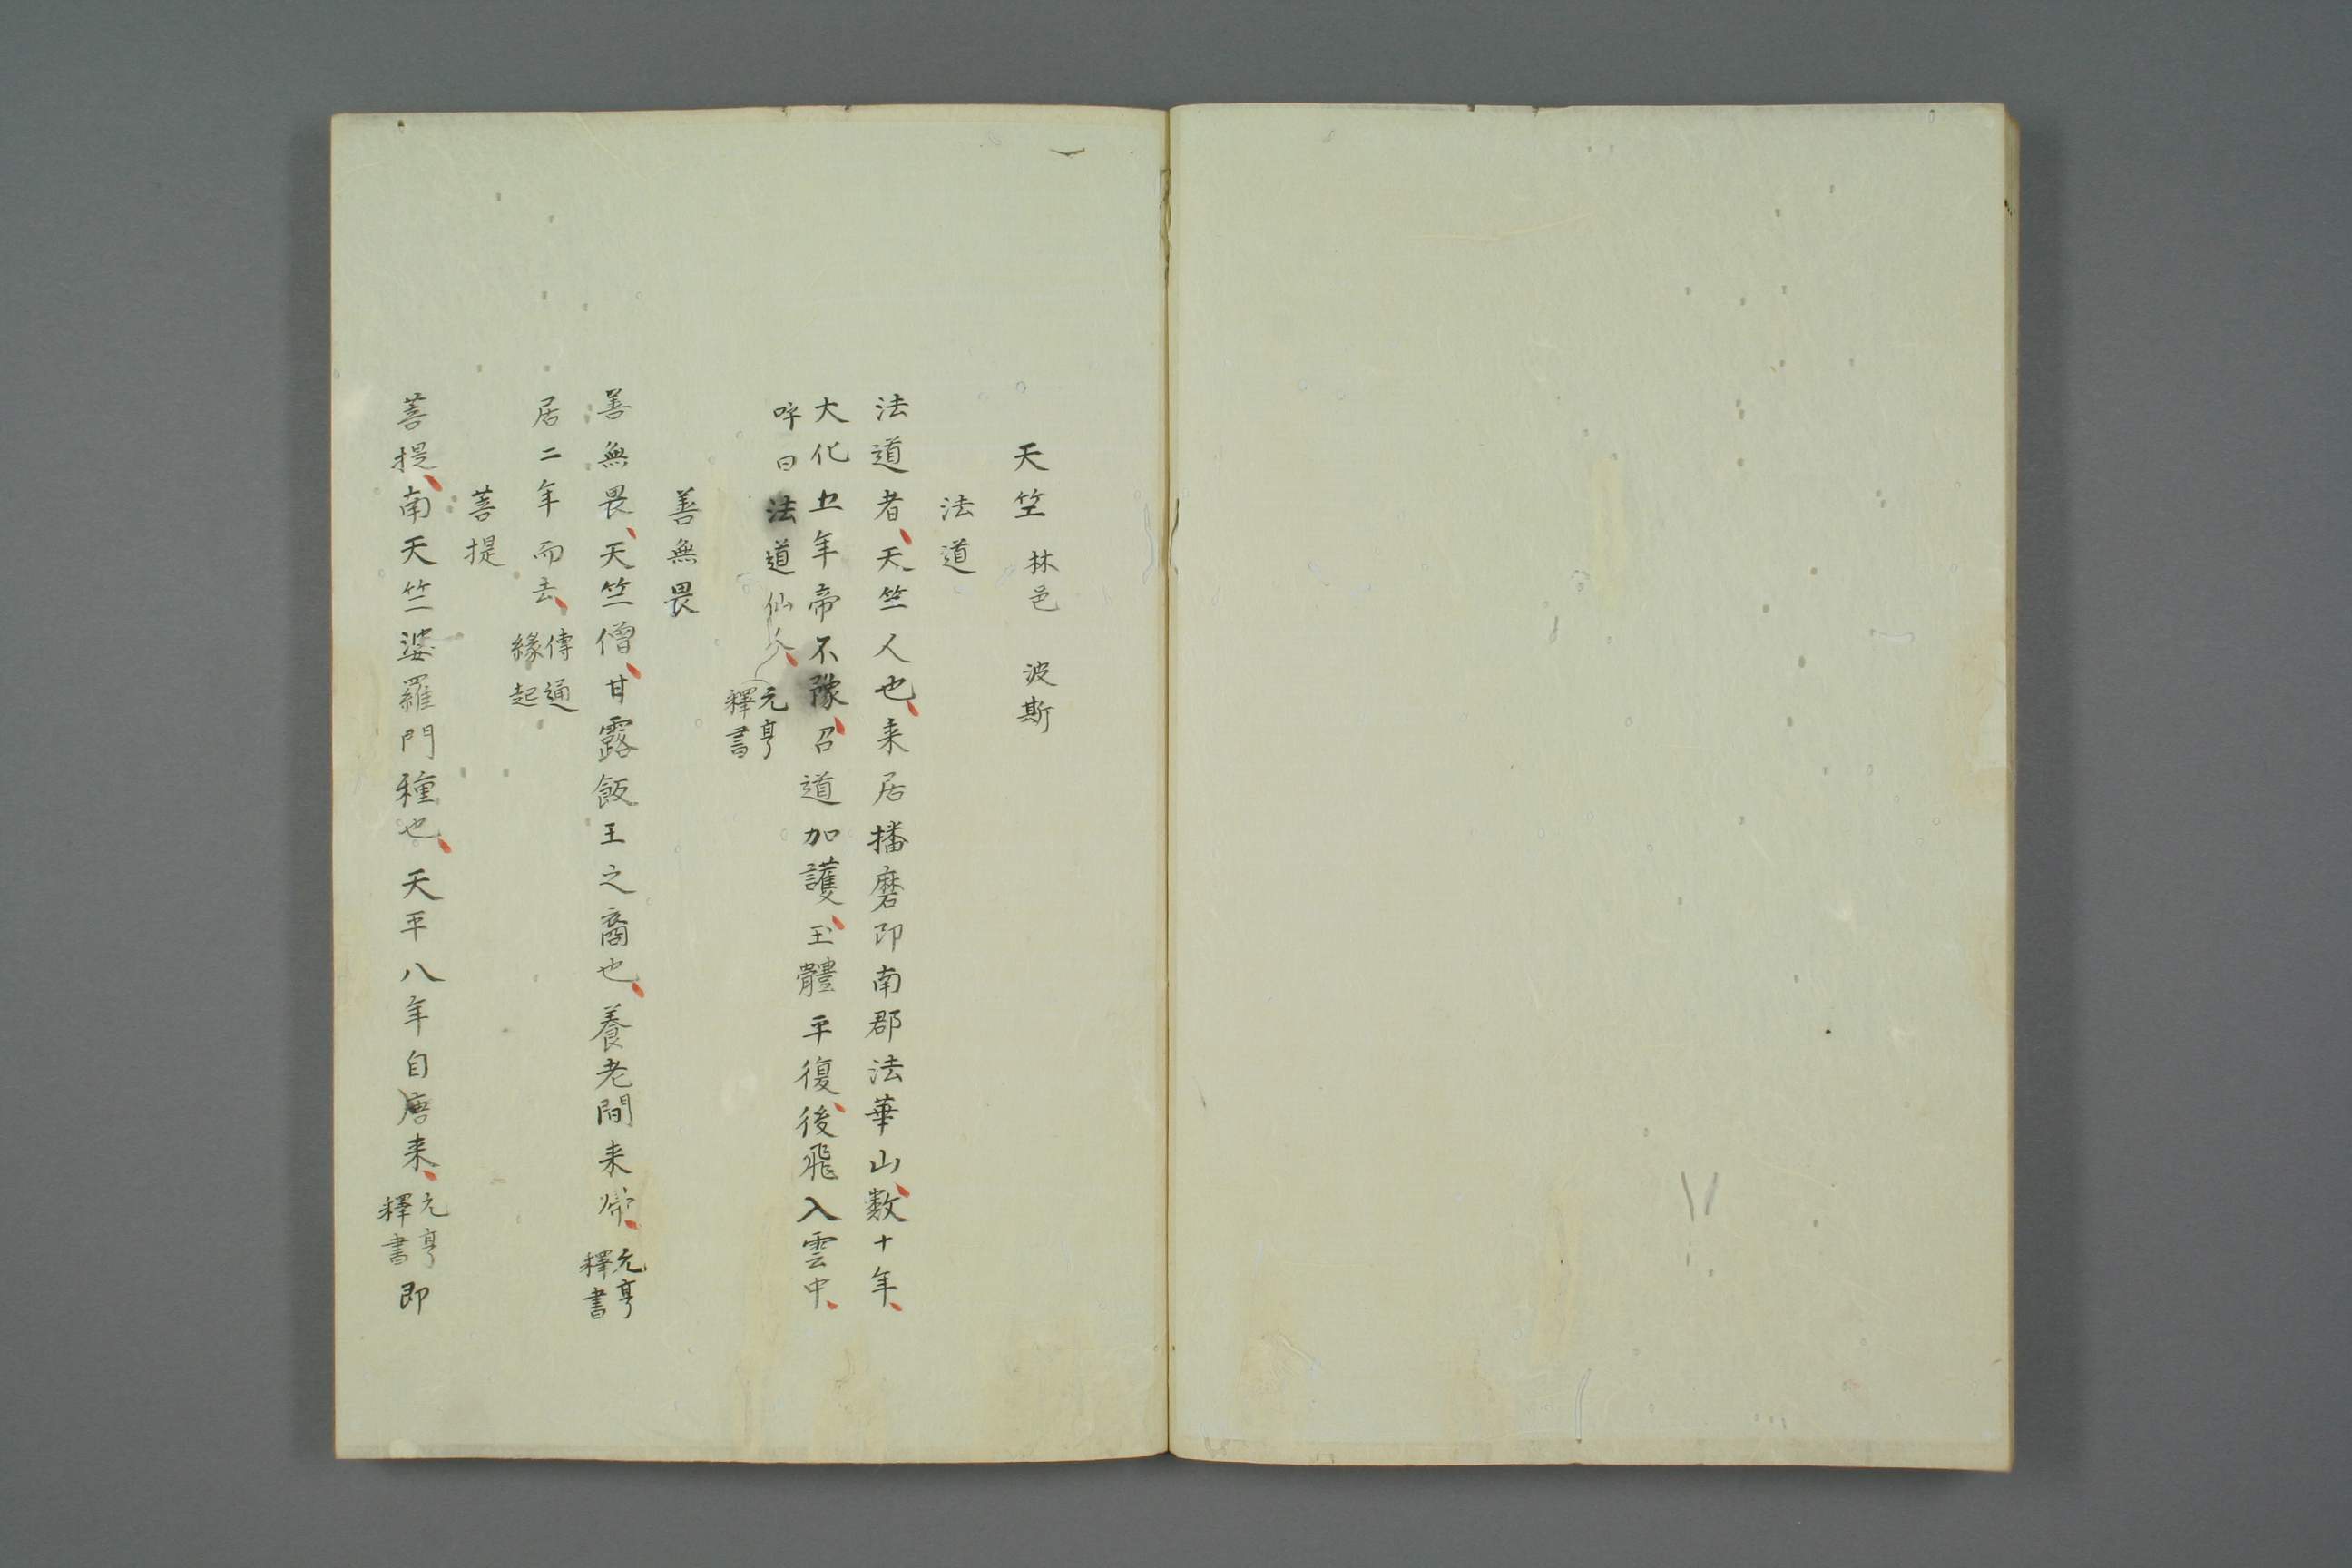 天竺 林邑 波斯
法道
法道者、天竺人也、来居播磨印南郡法華山、数十年、
大化五年帝不豫、召道加護、玉體平復、後飛入雲中、
呼曰法道仙人、元亨釋書
善無畏
善無畏、天竺僧、甘露飯王之裔也、養老間来、元亨釋書
居二年而去、傳通緣起
菩提
菩提、南天竺婆羅門種也、天平八年自唐来、元亨釋書即